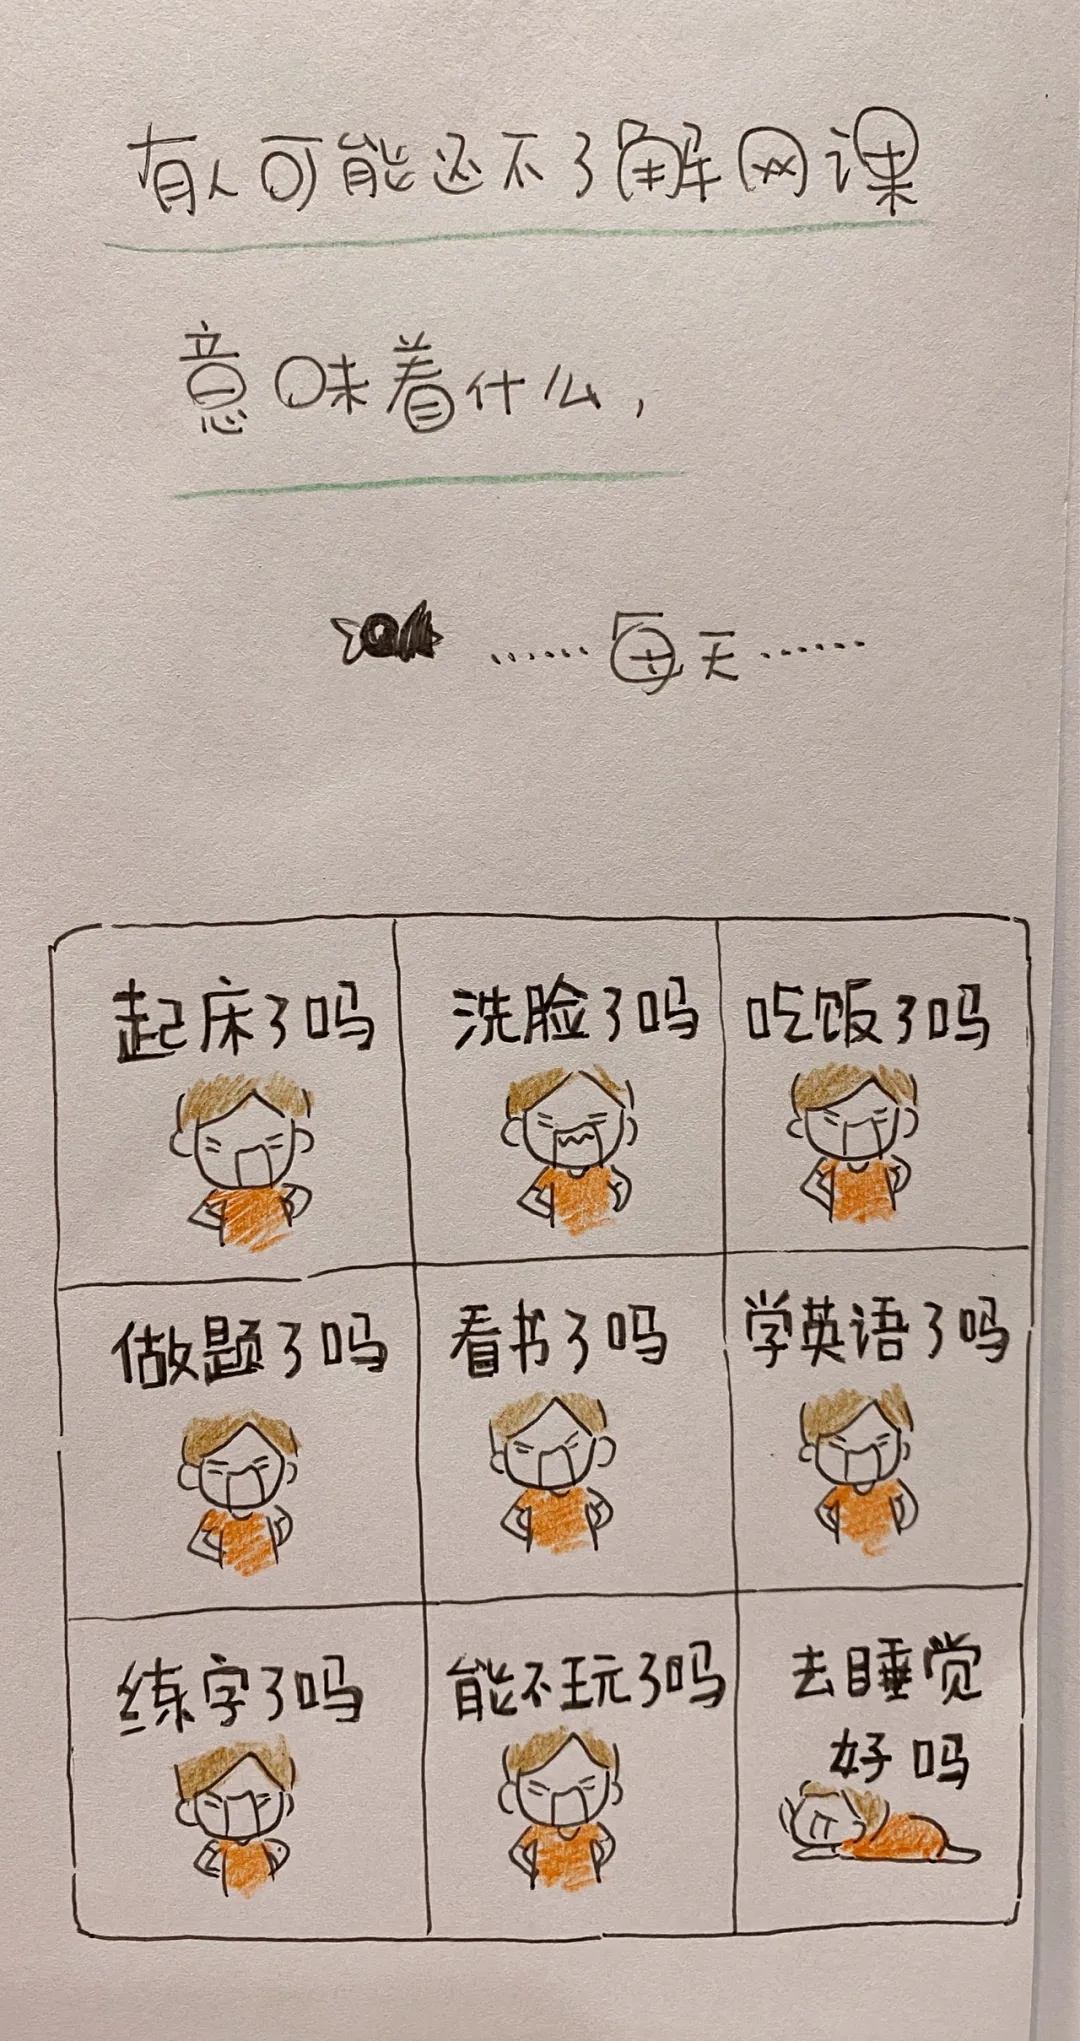 有人可能还不了解网课
意味着什么，
......每天......
起床了吗
洗脸了吗
吃饭了吗
做题了吗
看书了吗
学英语了吗
练字了吗
能不玩了吗
去睡觉
好吗